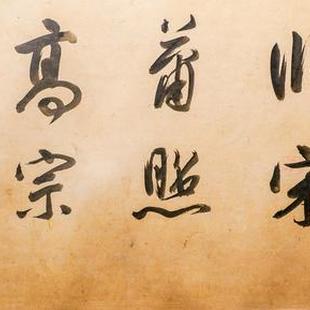 宋
蕭照
高宗